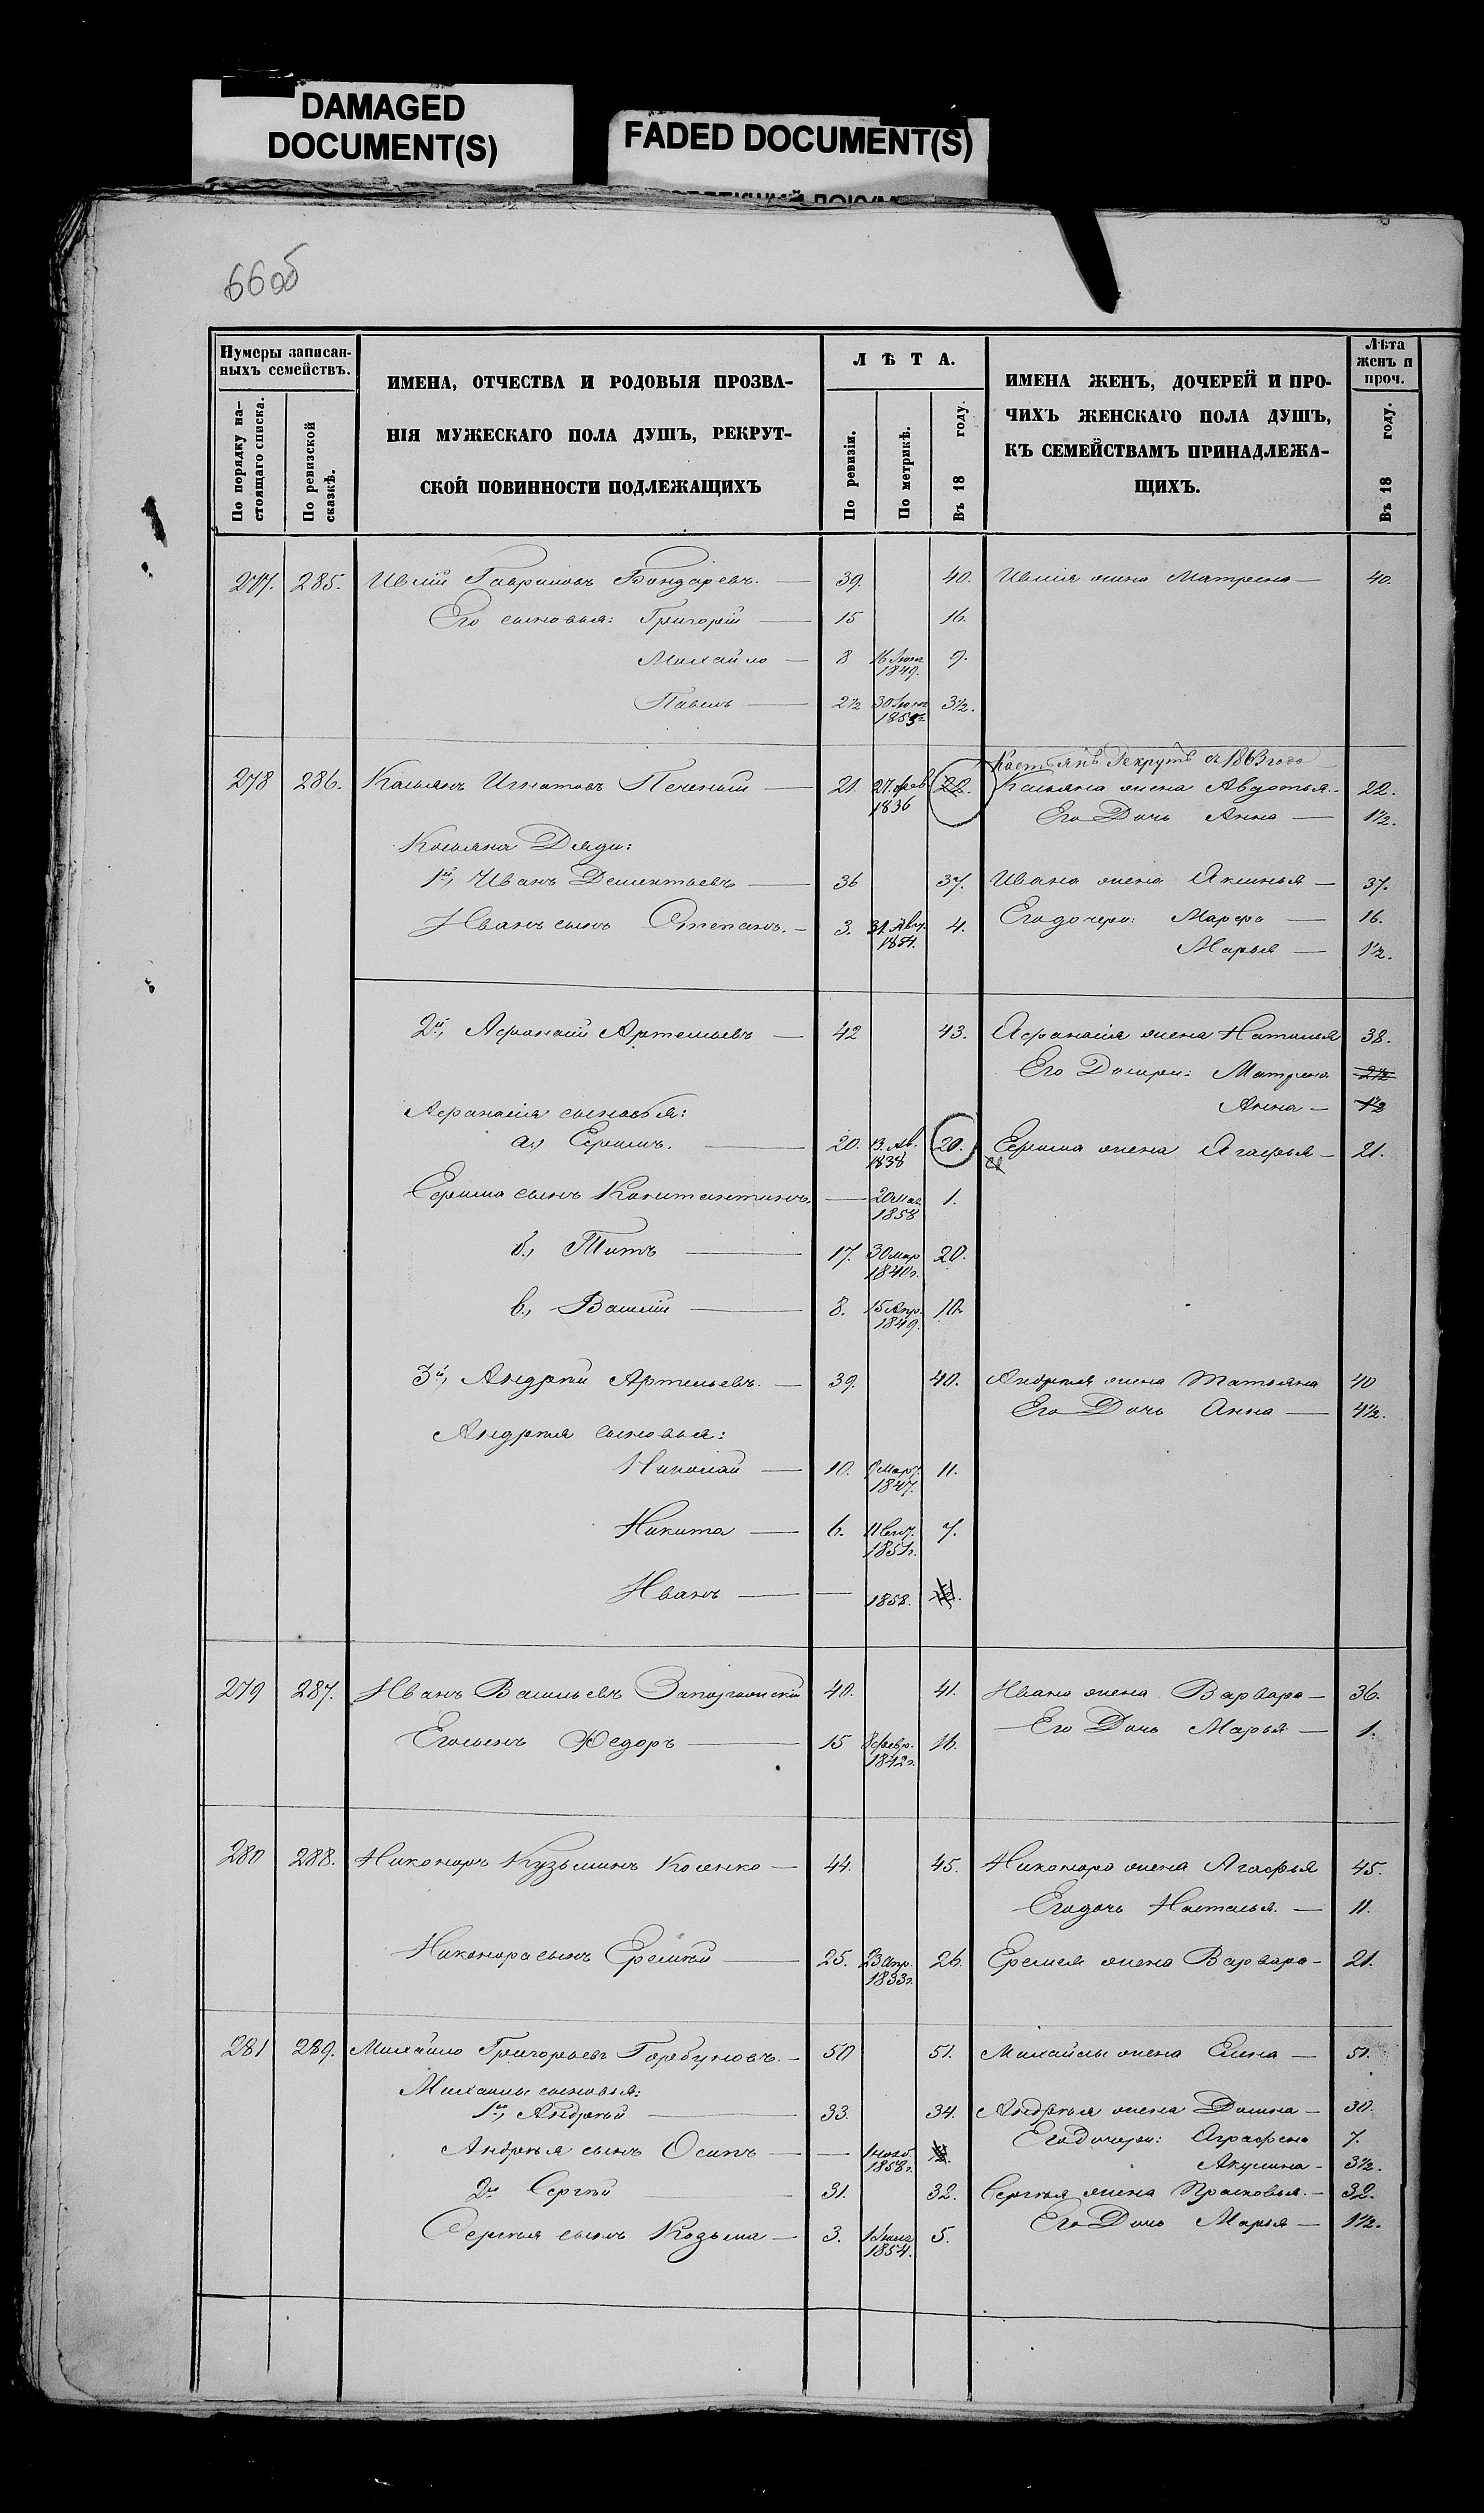 DAMAGED
DOCUMENT(S)
FADED DOCUMENT(S)
66об
Нумеры записан-
ныхъ семействъ.
По порядку на-
стоящаго списка.
По ревизской
сказкѣ.
ИМЕНА, ОТЧЕСТВА И РОДОВЫЯ ПРОЗВА-
НІЯ МУЖЕСКАГО ПОЛА ДУШЪ, РЕКРУТ-
СКОЙ ПОВИННОСТИ ПОДЛЕЖАЩИХЪ
ЛѢТА.
По ревизіи.
По метрикѣ.
Въ 18 году.
ИМЕНА ЖЕНЪ, ДОЧЕРЕЙ И ПРО-
ЧИХЪ ЖЕНСКАГО ПОЛА ДУШЪ,
КЪ СЕМЕЙСТВАМЪ ПРИНАДЛЕЖА-
ЩИХЪ.
Лѣта
женъ и
проч.
Въ 18 году.
277. 285. Гавриловъ Бондаревъ. — 39. 40. жена Матрена — 40.
Его сыновья: Григорій — 15 16.
Михайло — 8 1849. 9.
Павелъ — 2½ 30 3½.
Рекрутъ съ 1863 года
278 286. Касьянъ Игнатовъ Печеный — 21. 27. фев 1836 22. Касьяна жена Авдотья — 22.
Его Дочь Анна — 1½.
Касьяна Дяди:
1й, Иванъ Дементьевъ — 36 37. Ивана жена Аксинья — 37.
Иванъ сынъ Степанъ. — 3. 31 Авг. 1854. 4. Его дочери: Марфа — 16.
Марья — 1½.
2й, Афанасій Артемьевъ — 42 43. Афанасія жена Наталья 38.
Его Дочери: Матрена 2½
Анна — 1½
Афанасія сыновья:
а., Ефимъ. — 20. 13. Ав. 1838 20. Ефима жена Агафья — 21.
Ефима сынъ Константинъ. — 20 мая 1858 1.
б., Титъ — 17. 30 мар 1840г. 20.
в., Василій — 8. 15 Апр. 1849. 10.
3й, Андрей Артемьевъ. — 39. 40. Андрея жена Татьяна 40
Его Дочь Анна — 4½.
Андрея сыновья:
Николай — 10. Мар. 1847. 11.
Никита — 6. 11 1851г. 7.
Иванъ — — 1858.
279 287. Иванъ Васильевъ 40. 41. Ивана жена Варвара — 36.
Его сынъ Федоръ — 15 8 февр. 1842г. 16. Его Дочь Марья — 1.
280 288. Никоноръ Кузьминъ Косенко — 44. 45. Никонора жена Агафья 45.
Его дочь Наталья. — 11.
Никонора сынъ Еремѣй — 25. 23 апр. 1833г. 26. Еремея жена Варвара — 21.
281 289. Михайло Григорьевъ Горбуновъ. — 50 51. Михайлы жена Елена — 51.
Михайлы сыновья:
1й, Андрей — 33. 34. Андрея жена Домна — 30.
Андрея сынъ Осипъ — — 1 нояб. 1858г. Его Дочери: Аграфена 7.
Акулина — 3½.
2й Сергѣй — 31. 32. Сергѣя жена Прасковья. — 32.
Сергѣя сынъ Козьма — 3. 1854. 5. Его Дочь Марья — 1½.